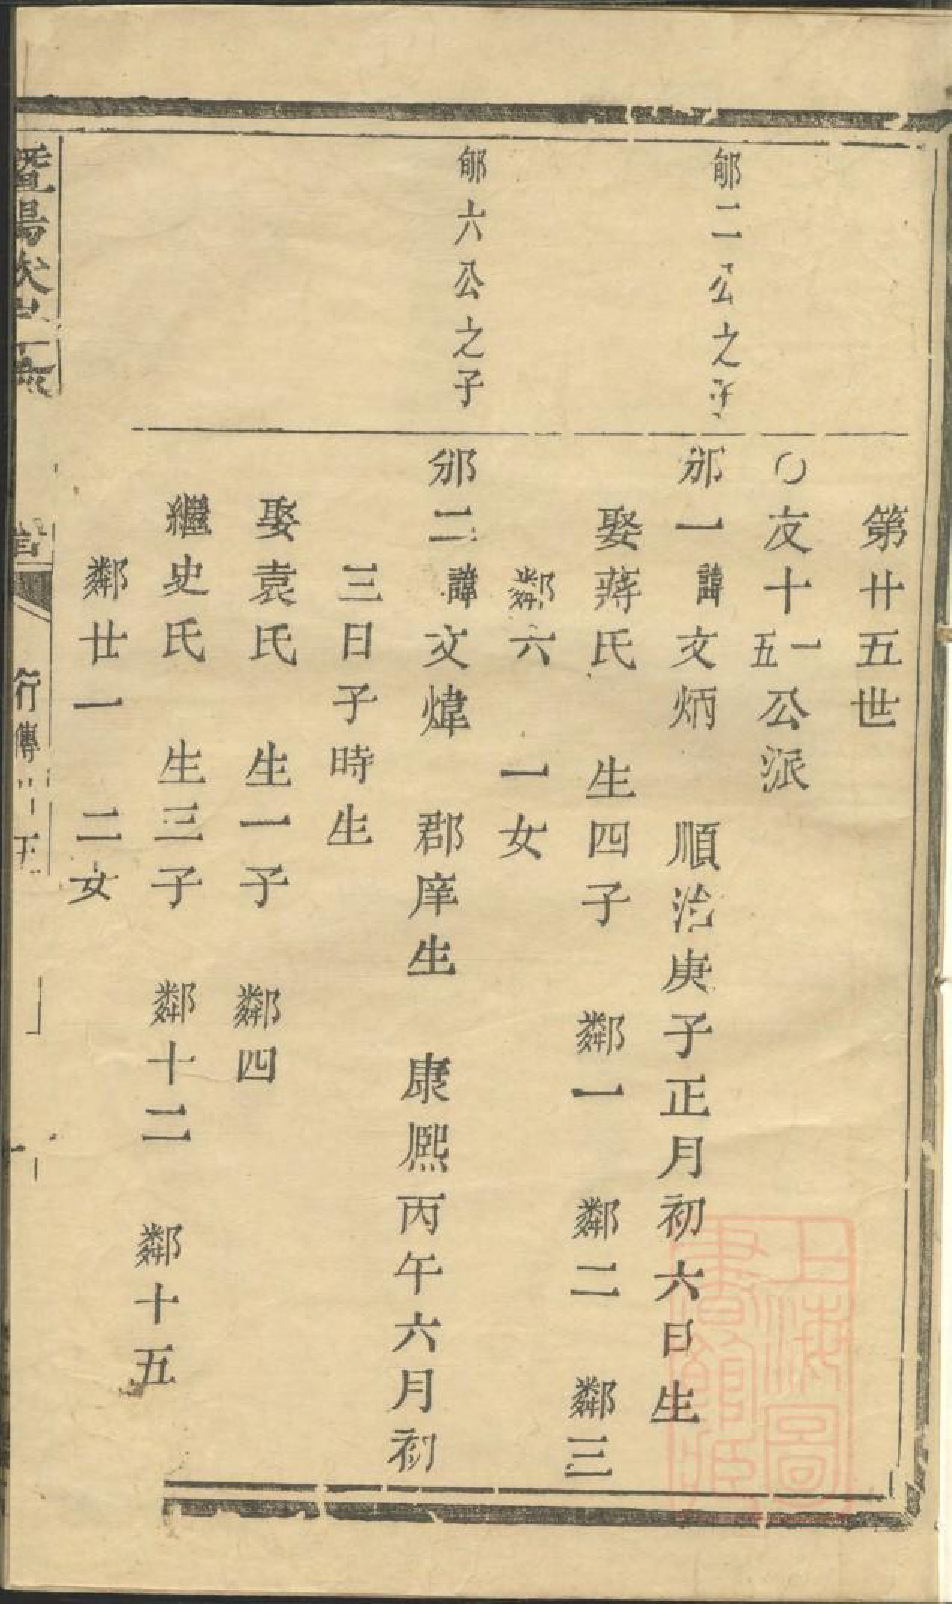 第廿五世
○友十一五公派
二公之子
邠一諱文炳　順治庚子正月初六日生
娶蔣氏　生四子　鄰一　鄰二　鄰三
鄰六　一女
六公之子
邠二諱文煒　郡庠生　康熙丙午六月初
三日子時生
娶袁氏　生一子　鄰四
繼史氏　生三子　鄰十二　鄰十五
鄰廿一　二女
暨陽
行傳
上海圖書館藏